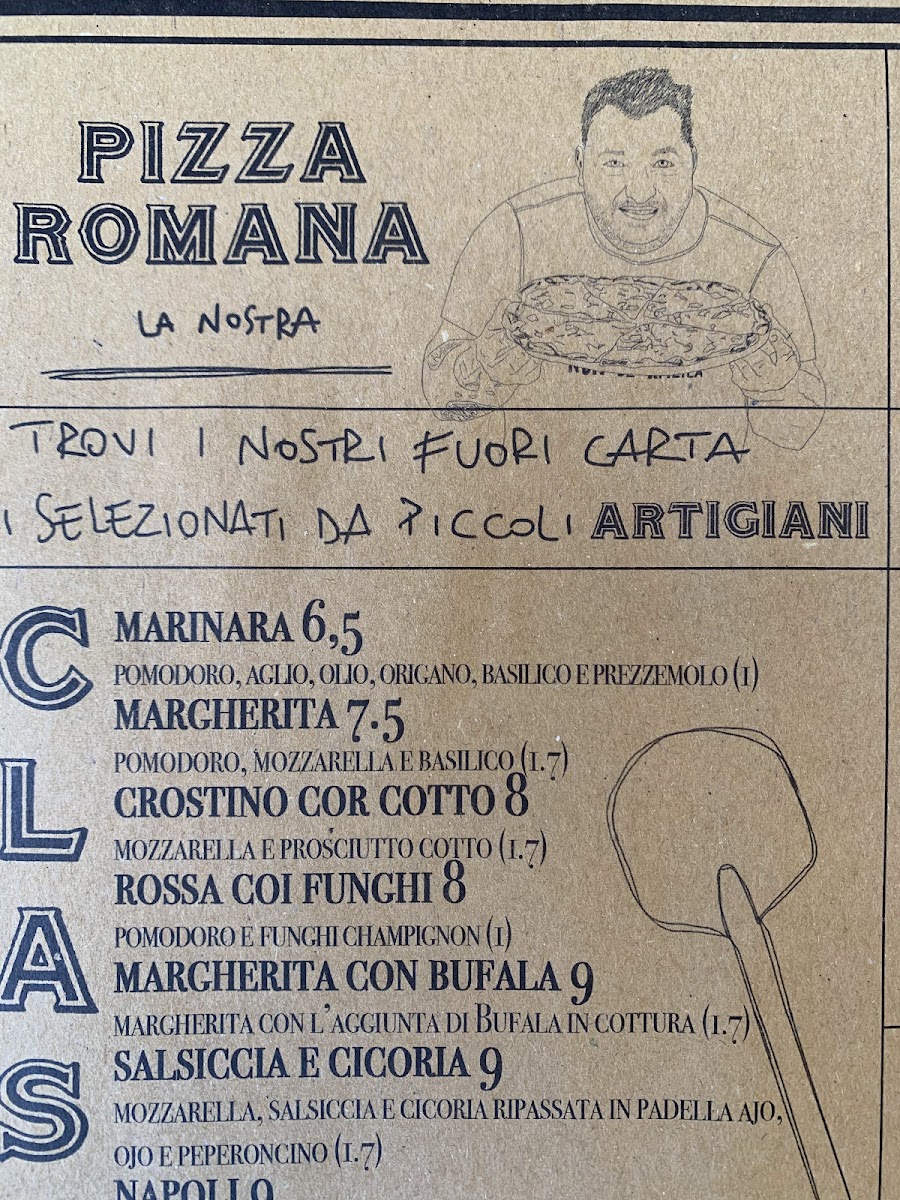 PIZZA
ROMANA
LA NOSTRA
TROVI I NOSTRI FUORI CARTA
I SELEZIONATI DA PICCOLI ARTIGIANI
CLAS
MARINARA 6,5
POMODORO, AGLIO, OLIO, ORIGANO, BASILICO E PREZZEMOLO (1)
MARGHERITA 7.5
POMODORO, MOZZARELLA E BASILICO (1.7)
CROSTINO COR COTTO 8
MOZZARELLA E PROSCIUTTO COTTO (1.7)
ROSSA COI FUNGHI 8
POMODORO E FUNGHI CHAMPIGNON (1)
MARGHERITA CON BUFALA 9
MARGHERITA CON L'AGGIUNTA DI BUFALA IN COTTURA (1.7)
SALSICCIA E CICORIA 9
MOZZARELLA, SALSICCIA E CICORIA RIPASSATA IN PADELLA AJO,
OJO E PEPERONCINO (1.7)
NAPOLI 9